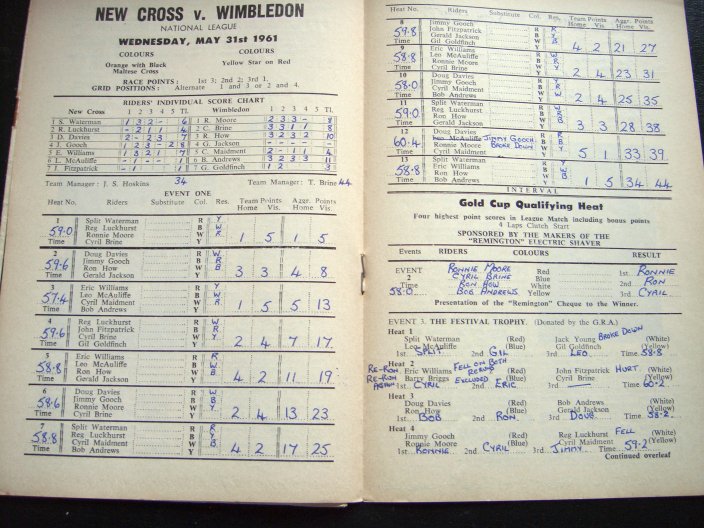 NEW CROSS v. WIMBLEDON
NATIONAL LEAGUE
WEDNESDAY, MAY 31st 1961
COLOURS COLOURS
Orange with Black Yellow Star on Red
Maltese Cross
RACE POINTS : 1st 3; 2nd 2; 3rd 1.
GRID POSITIONS : Alternate 1 and 3 or 2 and 4.
RIDERS' INDIVIDUAL SCORE CHART
New Cross 1 2 3 4 5 Tl. Wimbledon 1 2 3 4 5 Tl.
1 S. Waterman 1 3 2 - 6 1 R. Moore 2 3 3 - 8
2 R. Luckhurst - 2 1 1 4 2 C. Brine 3 3 1 1 8
3 D. Davies 2 - 2 3 7 3 R. How 3 2 3 2 10
4 J. Gooch 1 3 - 2 8 4 G. Jackson - - - -
5 E. Williams 1 3 2 1 7 5 C. Maidment 2 - 1 1 4
6 L. McAuliffe - 1 - - 1 6 B. Andrews 3 2 3 3 11
7 J. Fitzpatrick - 1 - 1 7 G. Goldfinch 1 2 3
Team Manager : J. S. Hoskins 34 Team Manager : T. Brine 44
EVENT ONE
Heat No. Riders Substitute Col. Res. Team Points Aggr. Points
Home Vis. Home Vis.
1 Split Waterman R Y
59·0 Reg Luckhurst B W 1 5 1 5
Ronnie Moore W R
Time Cyril Brine Y
2 Doug Davies R W
59·6 Jimmy Gooch B R 3 3 4 8
Ron How W B
Time Gerald Jackson Y
3 Eric Williams R Y
57·4 Leo McAuliffe B 1 5 5 13
Cyril Maidment W R
Time Bob Andrews Y
4 Reg Luckhurst R W
59·6 John Fitzpatrick B 2 4 7 17
Cyril Brine W Y
Time Gil Goldfinch Y
5 Eric Williams R R
58·8 Leo McAuliffe B W 4 2 11 19
Ron How W B
Time Gerald Jackson Y
6 Doug Davies R
58·6 Jimmy Gooch B 2 4 13 23
Ronnie Moore W
Time Cyril Brine Y
7 Split Waterman R R
58·8 Reg Luckhurst B Y 4 2 17 25
Cyril Maidment W B
Time Bob Andrews Y
Heat No. Riders Substitute Col. Res. Team Points Aggr. Points
Home Vis. Home Vis.
8 Jimmy Gooch R R
59·8 John Fitzpatrick B W 4 2 21 27
Gerald Jackson W Y
Time Gil Goldfinch Y
9 Eric Williams R
58·8 Leo McAuliffe B 2 4 23 31
Ronnie Moore W
Time Cyril Brine Y
10 Doug Davies R
58·8 Jimmy Gooch B 2 4 25 35
Cyril Maidment W
Time Bob Andrews Y
11 Split Waterman R
59·0 Reg Luckhurst B 3 3 28 38
Ron How W
Time Gerald Jackson Y
12 Doug Davies R
60·4 Leo McAuliffe JIMMY GOOCH B 5 1 33 39
Ronnie Moore BROKE DOWN W
Time Cyril Maidment Y
13 Split Waterman R
58·8 Eric Williams B 1 5 34 44
Ron How W
Time Bob Andrews Y
INTERVAL
Gold Cup Qualifying Heat
Four highest point scores in League Match including bonus points
4 Laps Clutch Start
SPONSORED BY THE MAKERS OF THE
"REMINGTON" ELECTRIC SHAVER
Events RIDERS COLOURS RESULT
EVENT RONNIE MOORE Red 1st. RONNIE
2 CYRIL BRINE Blue
58·0 RON HOW White 2nd RON
Time BOB ANDREWS Yellow 3rd CYRIL
Presentation of the "Remington" Cheque to the Winner.
EVENT 3. THE FESTIVAL TROPHY. (Donated by the G.R.A.)
Heat 1
Split Waterman (Red) Jack Young BROKE DOWN (White)
Leo McAuliffe (Blue) Gil Goldfinch (Yellow)
1st SPLIT 2nd GIL 3rd LEO Time. 58·8
Heat 2 FELL ON BOTH
RE-RUN Eric Williams RERUNS (Red) John Fitzpatrick HURT. (White)
RE-RUN Barry Briggs EXCLUDED (Blue) Cyril Brine (Yellow)
AGAIN 1st CYRIL 2nd ERIC 3rd — Time 60·2
Heat 3
Doug Davies (Red) Bob Andrews (White)
Ron How (Blue) Gerald Jackson (Yellow)
1st BOB 2nd RON. 3rd DOUG Time 58·2
Heat 4
Jimmy Gooch (Red) Reg Luckhurst FELL (White)
Ronnie Moore (Blue) Cyril Maidment (Yellow)
1st RONNIE 2nd CYRIL 3rd. JIMMY Time 59·2
Continued overleaf